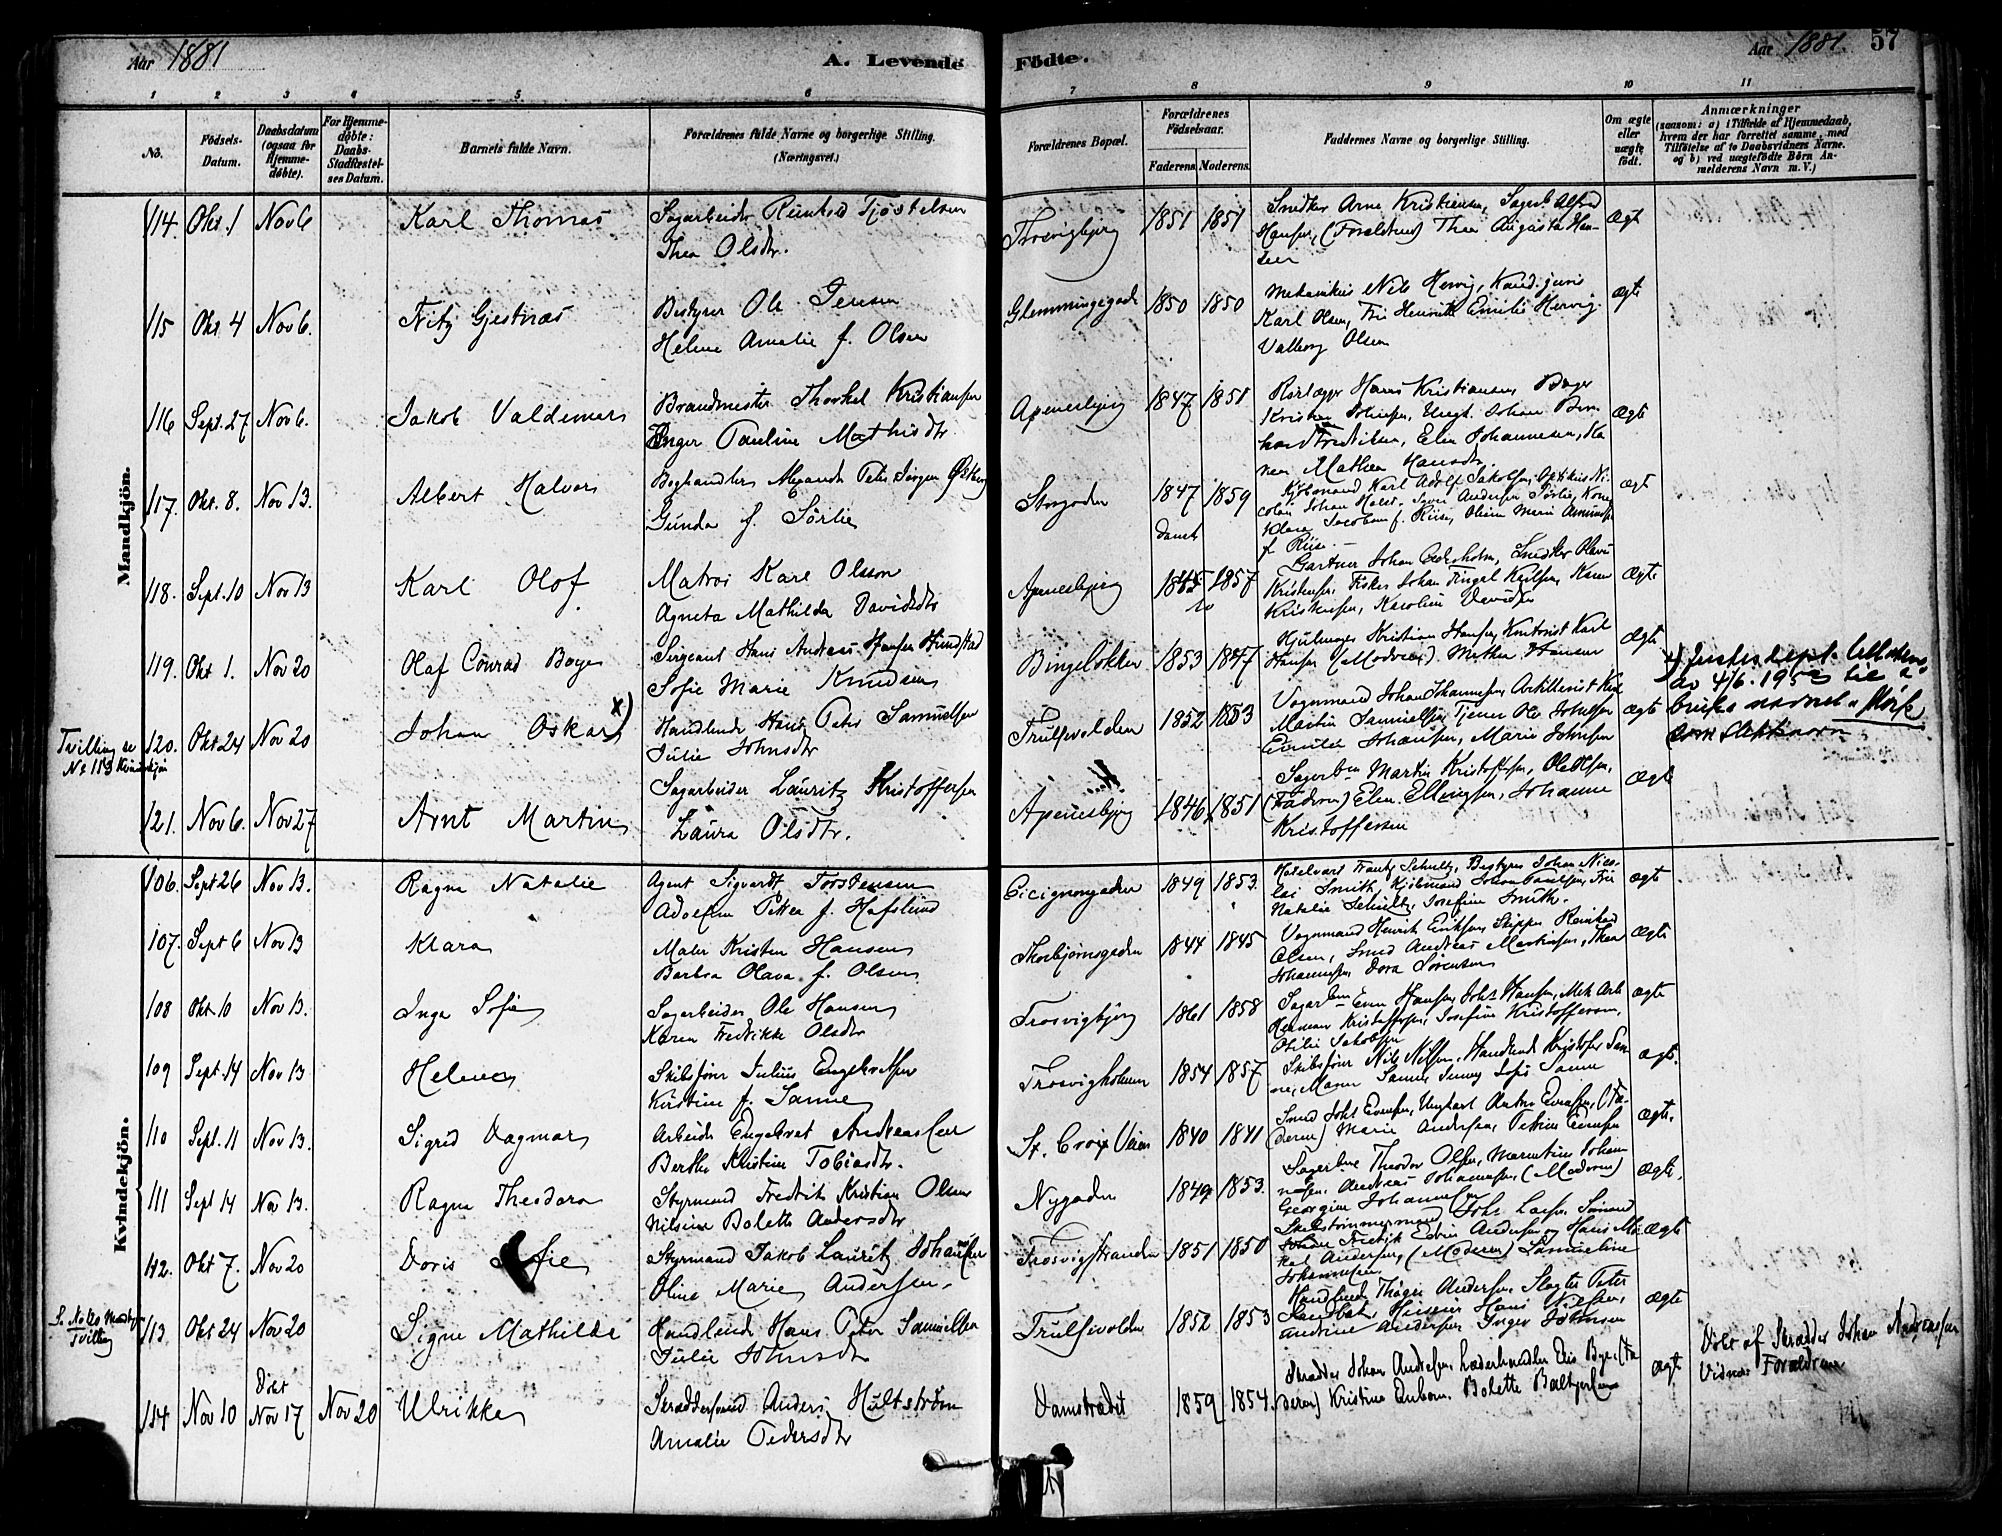 Aar 1881 A. Levende Födte. Aar 1881. 57
1 2 3 4 5 6 7 8 9 10 11
No.
Födsels-
Datum.
Daabsdatum
(ogsaa for
Hjemme-
døbte).
For Hjemme-
døbte:
Daabs-
Stadfæstel-
ses Datum.
Barnets fulde Navn.
Forældrenes fulde Navne og borgerlige Stilling.
(Næringsvei.)
Forældrenes Bopæl.
Forældrenes
Födselsaar.
Faderens. Moderens.
Faddernes Navne og borgerlige Stilling.
Om ægte
eller
uægte
födt.
Anmærkninger
(saasom: a) i Tilfælde af Hjemmedaab,
hvem der har forrettet samme, med
Tilföielse af to Daabsvidners Navne.
og b) ved uægtefödte Börn An-
melderens Navn m. V.)
Mandkjön.
114. Okt. 1 Nov 6 Karl Thomas Sagarbeider
Thea Olsdtr. Trosvigbjerg 1851 1851 Snedker Arne Kristiansen, Alfred
Hansen, (Forældrene) Thea Augusta Han-
sen Ægt
115 Okt. 4 Nov 6. Fritz Gjestnæs Bestyrer Ole Jensen
Helene Amalie f. Olsen Glemmingegade 1850 1850 Mekanikus Nils Hervig, Kand. juris
Karl Olsen, Emilie Hervig
Valborg Olsen ægte
116 Sept. 27 Nov 6. Jakob Valdemar Brandmester Thorkel Kristiansen
Inger Pauline Mathisdtr. Apenesbjerg 1847 1851 Rørlægger Hans Kristiansen, Bager
Kristian Johnsen, Ungk. Johan Bern
hard Fredriksen, Elen Johannesen, Ka
ren Mathea Hansdtr ægte
117. Okt. 8. Nov 13. Albert Halvor Boghandler Alexander Peter Jørgen Østberg
Gunda f. Sørlie Storgaden 1847 1859
Dansk Kjøbmand Karl Adolf Jakobsen, Optikus Ni-
colai Johan Holst, Andersen Sørlie, Kone
Klara Jacobsen f. Riise, Olivia Marie
f. Riise. ægt
118. Sept. 10 Nov 13 Karl Olof Matros Karl Olsson
Agneta Mathilda Davidsdtr Apenesbjerg 1857 Gartner Johan Cederholm, Snedker
Kristensen, Fisker Johan Karen
Kristensen, Karoline Davidsen Ægte
119. Okt 1. Nov 20 Olaf Conrad Boye Sergeant Hans Andreas Hansen
Sofie Marie Knudsen Bingeløkken 1853 1847 Hjulmager Kristian Hansen, Karl
Hansen (Moderen) Mathea Hansen Ægte
Tvilling se
No 113 Kvindekjøn 120. Okt 24 Nov 20 Johan Oskar x) Handlende Hans Peter Samuelsen
Julie Johnsdtr Trulsevolden 1852 1853 Vognmand Johan Johannesen, Artillerist Karl
Martin Samuelsen, Tjener Ole Johnsen
Emilie Johansen, Marie Johnsen ægte
x) Justisdept. tillatelse
av 4/6. 19 til å
bruke navnet
som slektsnavn
121. Nov 6. Nov 27 Arnt Martin Sagarbeider Lauritz Kristoffersen
Laura Olsdtr. Apenesbjerg 1846 1851 Sagarben Martin Kristoffersen, Ole Olsen,
(Faderen) Elen Ellingsen, Johanne
Kristoffersen Ægte
Kvindekjön.
106. Sept 26 Nov 13. Ragna Natalie Agent Sigvardt Torstensen
Adolfine Petrea f. Hafslund Cicignongaden 1849 1853. Hotelvært Frantz Schultz, Bestyrer Johan Nico-
lai Smith, Kjøbmand Johan Paulsen, Frk
Natalie Schultz, Josefine Smith. ægte
107. Sept 6 Nov 13 Klara Maler Kristen Hansen
Barbra Olava f. Olsen Thorbjørnsgaden 1844 1845 Vognmand Henrik Eriksen, Skipper Reinhard
Olsen, Smed Andreas Martinsen, Thea
Johannesen, Dora Sørensen ægte
108 Okt 10 Nov 13. Inga Sofie Sagarbeider Ole Hansen
Karen Fredrikke Olsdtr Trosvigbjerg 1861 1858 Sagarben Even Hansen, Johs Hansen, Mek Arb
Herman Kristoffersen, Josefine Kristoffersen,
Otilie Jakobsen ægte
109 Sept. 14 Nov 13 Helene Skibsfører Julius Engelvelsen
Kristine f. Sanne Trosvigholmen 1854 1857 Skibsfører Nils Nilsen, Handlende Kristofer San
ne, Maren Sanne, Jenny Sofie Sanne ægte.
110 Sept. 11 Nov 13. Sigrid Dagmar Arbeider Engebret Andreassen
Berthe Kristine Tobiasdtr. St. Croix Veien 1840 1841 Smed Johs Evensen, Ungkarl Anton Evensen, (Fa-
deren) Marie Andersen, Petrine Evensen ægte.
111 Sept 14 Nov 13. Ragna Theodora Styrmand Fredrik Kristian Olsen
Nilsine Bolette Andersdtr Nygaden 1849 1853. Sagarbeid Theodor Olsen, Martinius Johan
nesen, Andreas Johannesen, (Moderen)
Georgine Johannesen ægte.
112. Okt 7. Nov 20 Doris Sofie Styrmand Jakob Lauritz Johansen
Oline Marie Andersen. Trosvigstranden 1851 1850 Skibstømmermand Johs Larsen, Sømand
Johan Fredrik Edvin Andersen, Hans Mi-
kal Andersen, (Moderen) Lamueline
Johannesen ægte
Se No 120 Mandkjøn
Tvilling 113. Okt 24 Nov 20 Signe Mathilde Handlende Hans Peter Samuelsen
Julie Johnsdtr Trulsevolden 1852 1853 Handlende Thøger Andersen, Slagter Peter
Sandbæk, Hans Nielsen,
Andrine Andersen, Inger Johnsen ægte
114 Nov 10 Døbt
Nov 17 Nov 20 Ulrikke Skræddersvend Anders Hultstrøm
Amalie Pedersdtr Damstrædet 1859 1854. Skrædder Johan Andresen, Læderhandler Elis Bye, (Fa
deren) Kristine Enbom, Bolette ægte Døbt af Skrædder Johan Andresen
Vidner Forældrene